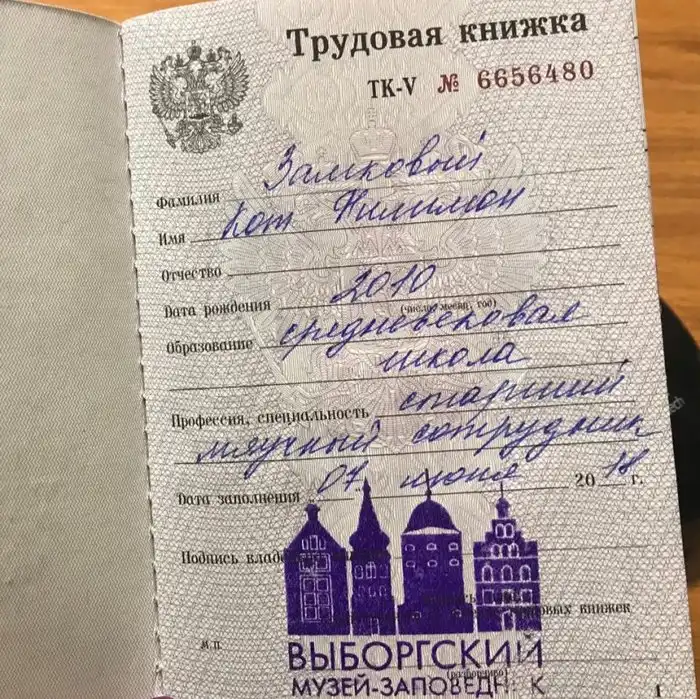 Трудовая книжка
ТК-V № 6656480
Фамилия Замковый
Имя Кот Филимон
Отчество
Дата рождения 2010
(число, месяц, год)
Образование средневековая
школа
Профессия, специальность старший
мяучный сотрудник
Дата заполнения 07 июня 2018 г.
Подпись влад
овых книжек
М.П.
(разборчиво)
ВЫБОРГСКИЙ
МУЗЕЙ-ЗАПОВЕДНИК